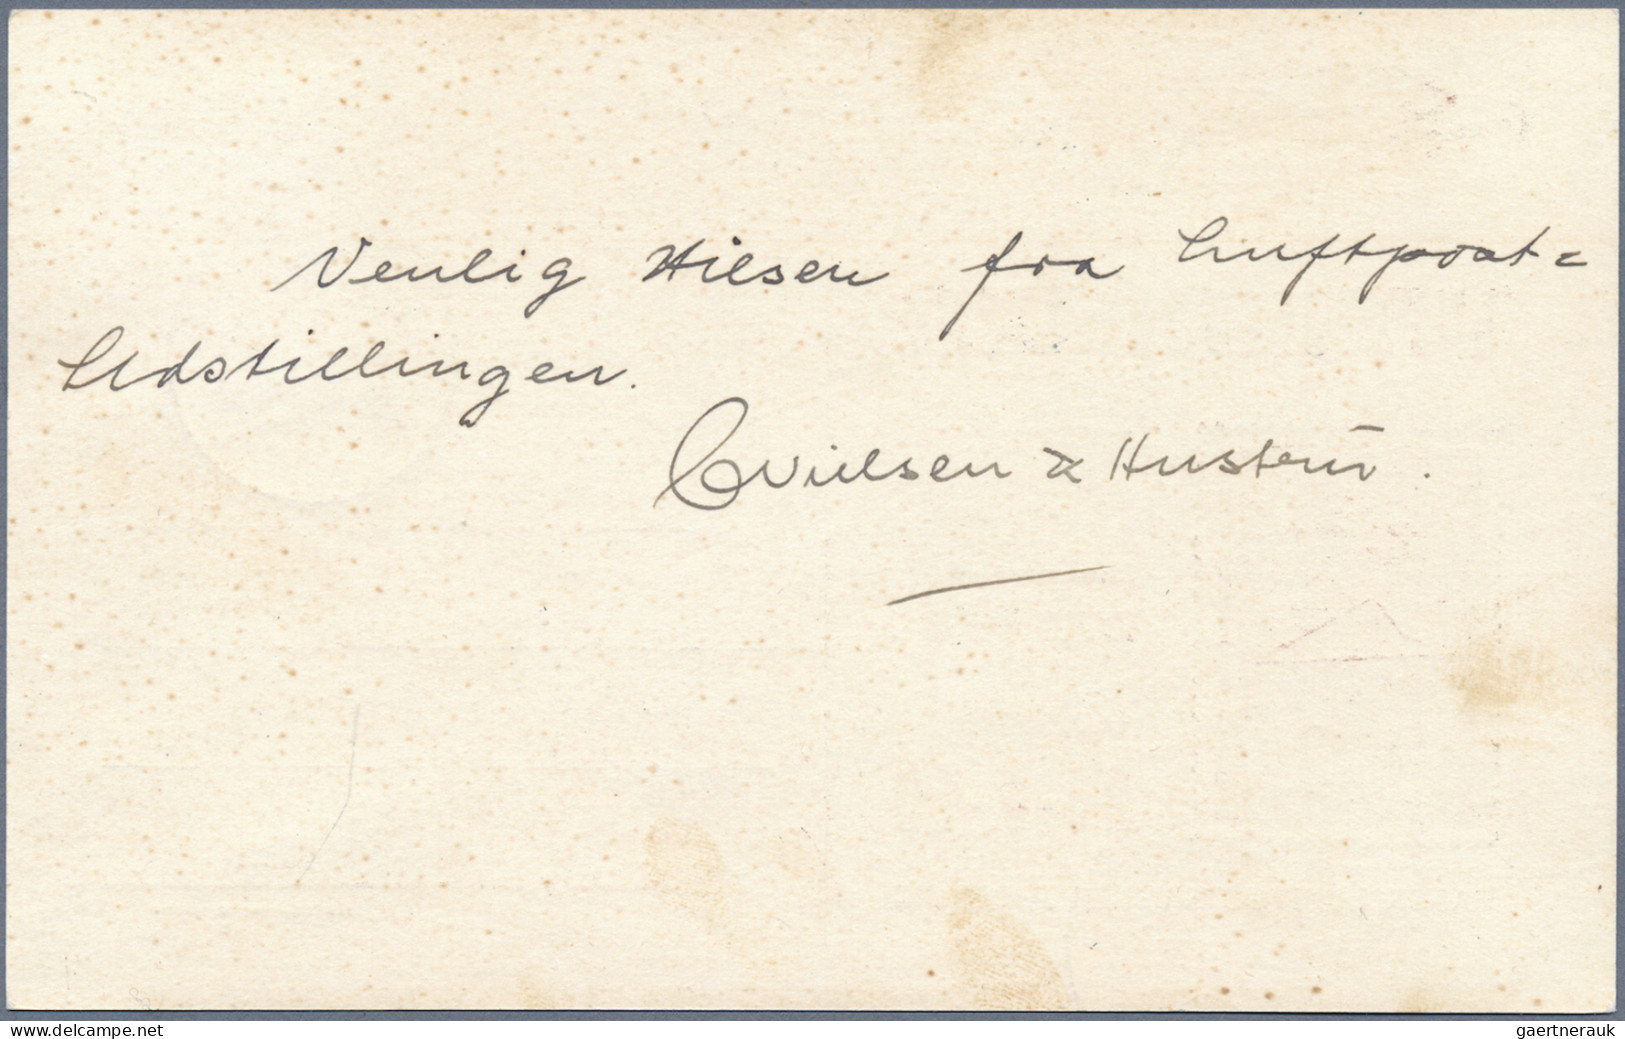 Venlig Hilsen fra Luftpost=
Udstillingen.
Nielsen & Hustru.
www.delcampe.net
gaertnerauk